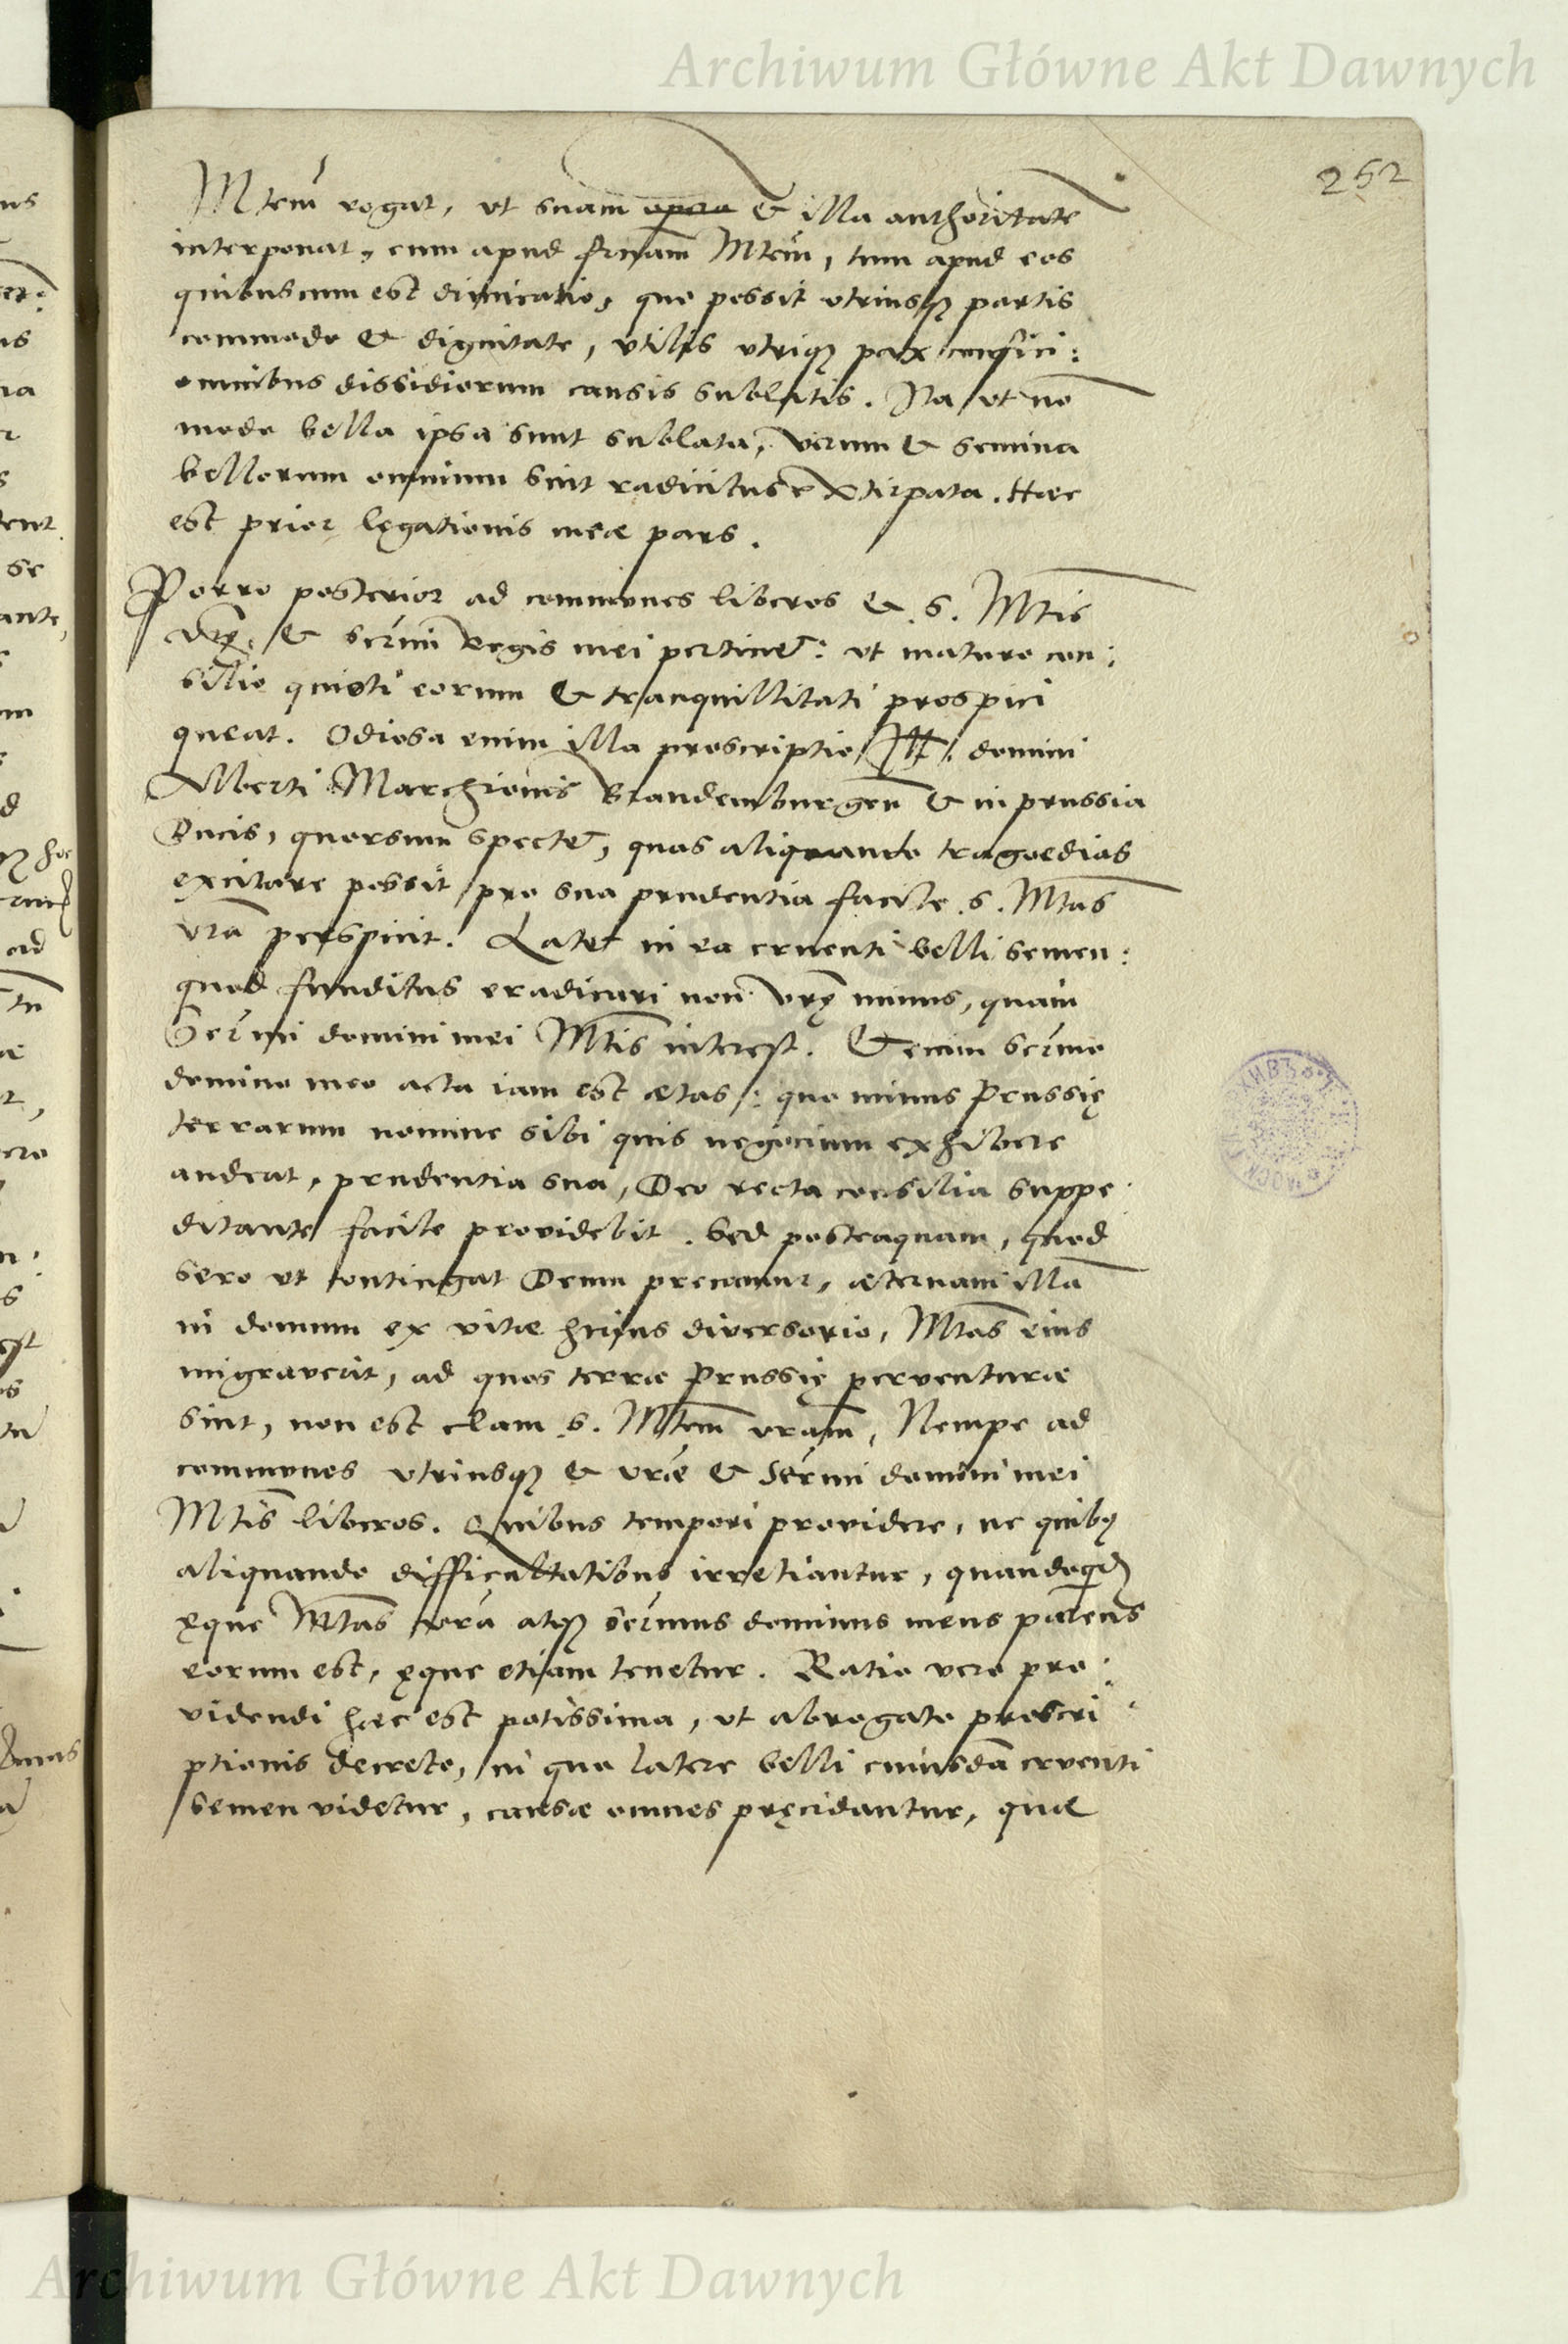 Archiwum Główne Akt Dawnych
252
Mtem rogat, ut suam opera & illa authoritate
interponat, cum apud frnam Mtem, tum apud eos
quibuscum est dimicatio, quo possit utriusq partis
commodo & dignitate, utilis utriq pax confici:
omnibus dissidiorum causis sublatis. Ita ut no
modo bella ipsa sunt sublata, verum & semina
bellorum omnium sint radicitus extirpata. Haec
est prior legationis meae pars.
Porro posterior ad communes liberos & S. Mtis
& sermi Regis mei pertinet: ut maturo con:
silio quieti eorum & tranquillitati prospici
queat. Odiosa enim illa proscriptio Ill. domini
Alberti Marchionis Brandemburgen & in prussia
Ducis, quorsum spectet, quas aliquando tragoedias
excitare possit pro sua prudentia facile S. Mtas
vra perspicit. Latet in ea cruenti belli semen:
quod funditus eradicari non vrę minus, quam
Sermi domini mei Mtis interest. Etenim sermo
domino meo acta iam est aetas: quo minus Prussię
terrarum nomine sibi quis negocium exhibere
audeat, prudentia sua, Deo recta consilia suppe
ditante facile providebit. Sed posteaquam, quod
sero ut contingat Deum precamur, aeternam illa
in domum ex vitae huius diversorio, Mtas eius
migraverit, ad quos terrae Prussię perventurae
sint, non est clam S. Mtem vram, Nempe ad
communes utriusq & vrae & Sermi domini mei
Mtis liberos. Quibus tempori providere, ne quibꝫ
aliquando difficultatibus irretiantur, quandoqd
ęque Mtas vra atq sermus dominus meus parens
eorum est, ęque etiam tenetur. Ratio vero pro:
videndi haec est potissima, ut abrogato proscri
ptionis decreto, in quo latere belli cuiusda cruenti
semen videtur, causae omnes pręcidantur, quae
Archiwum Główne Akt Dawnych